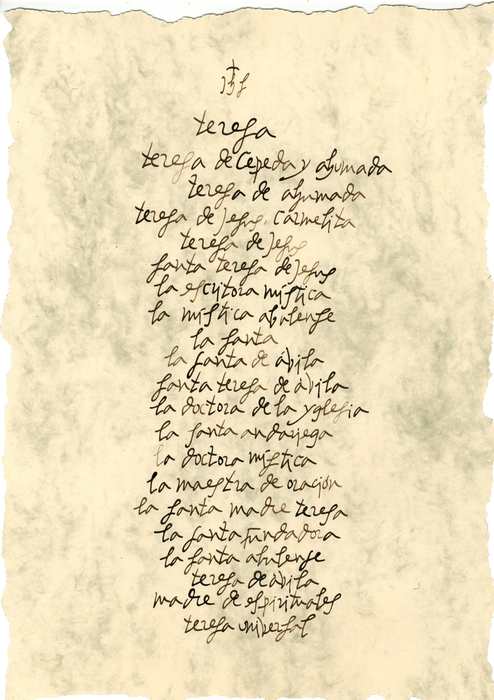 JHS
teresa
teresa de Cepeda y ahumada
teresa de ahumada
teresa de jesus, carmelita
teresa de jesus
santa teresa de jesus
la escritora mistica
la mistica abulense
la santa
la santa de ávila
santa teresa de ávila
la doctora de la yglesia
la santa andariega
la doctora mistica
la maestra de oraçion
la santa madre teresa
la santa fundadora
la santa abulense
teresa de ávila
madre de espirituales
teresa universal